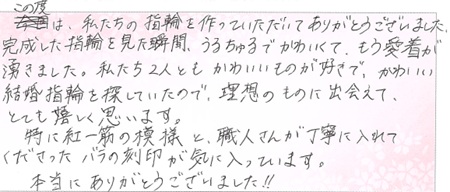 この度
は、私たちの指輪を作っていただいてありがとうございました。
完成した指輪を見た瞬間、うるちゅるでかわいくて、もう愛着が
湧きました。私たち2人ともかわいいものが好きで、かわいい
結婚指輪を探していたので、理想のものに出会えて、
とても嬉しく思います。
特に紅一筋の模様と、職人さんが丁寧に入れて
くださったバラの刻印が気に入っています。
本当にありがとうございました!!